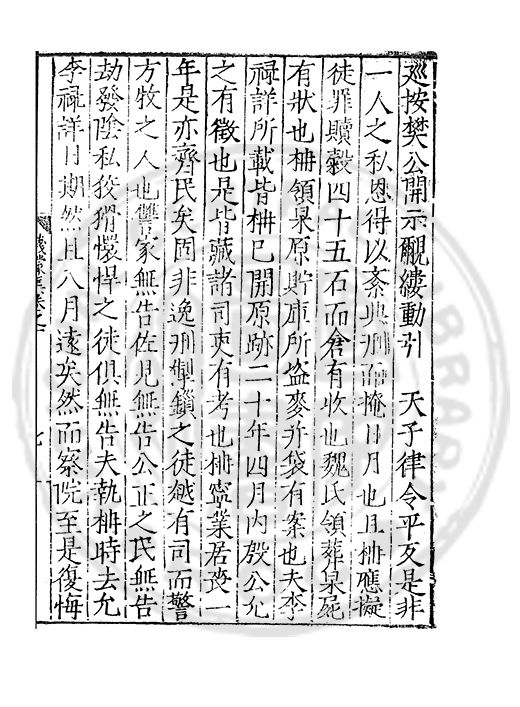 廵按樊公開示覼縷動引　天子律令平反是非
一人之私恩得以紊典刑而掩日月也且枏應擬
徒罪贖穀四十五石而倉有收也魏氏領葬杲屍
有狀也枏領杲原貯庫所盗麥并袋有案也夫李
祿詳所載皆枏已開原跡二十年四月内殷公允
之有徵也是皆藏諸司吏有考也枏寜業居喪一
年是亦齊民矣固非逸刑掣鎖之徒越有司而警
方牧之人也讐家無告佐見無告公正之民無告
劫發陰私狡猾懷悍之徒俱無告夫執枏時去允
李祿詳日期然且八月遠矣然而察院至是復悔